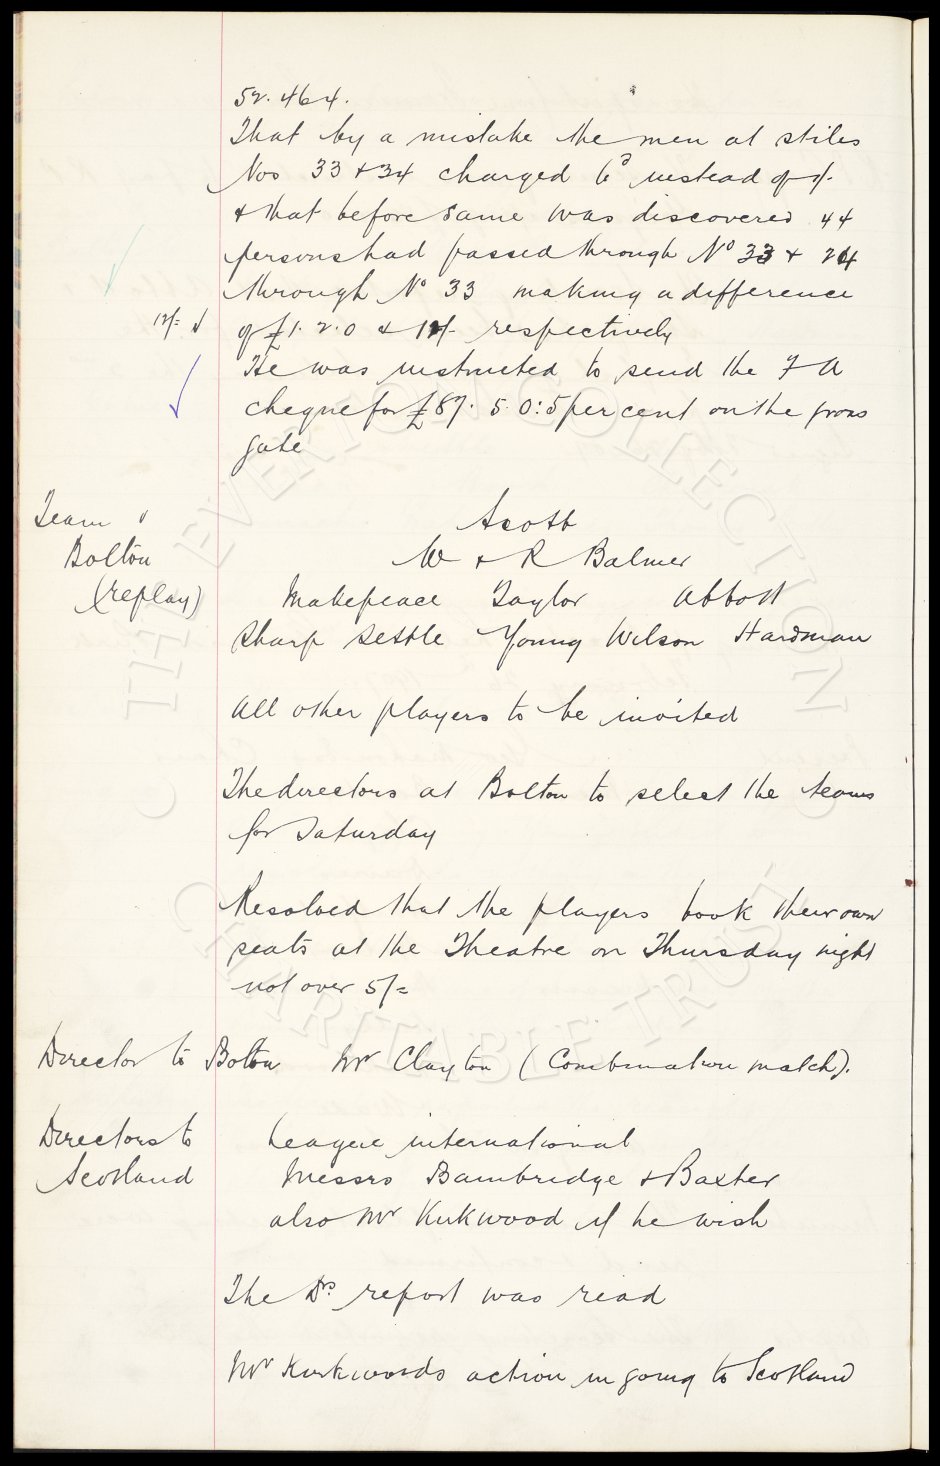 52.464.
That by a mistake the men at stiles
Nos 33 + 34 charged 6d instead of 1/-
+ that before same was discovered 44
persons had passed through No 33 + 24
through No 33 making a difference
12/=
of £1.2.0 + 12/- respectively
He was instructed to send the F A
cheque for £87.5.0:5 per cent on the gross
gate
Team
Bolton
(replay)
Scott
W + R Balmer
Makepeace Taylor Abbott
Sharp Settle Young Wilson Hardman
All other players to be invited
The directors at Bolton to select the teams
for Saturday
Resolved that the players book their own
seats at the Theatre on Thursday night
not over 5/=
Director to Bolton Mr Clayton (Combination match).
Directors to
Scotland
League international
Messrs Bainbridge + Baxter
also Mr Kirkwood if he wish
The Drs. report was read
Mr Kirkwoods action in going to Scotland
© THE EVERTON COLLECTION
CHARITABLE TRUST